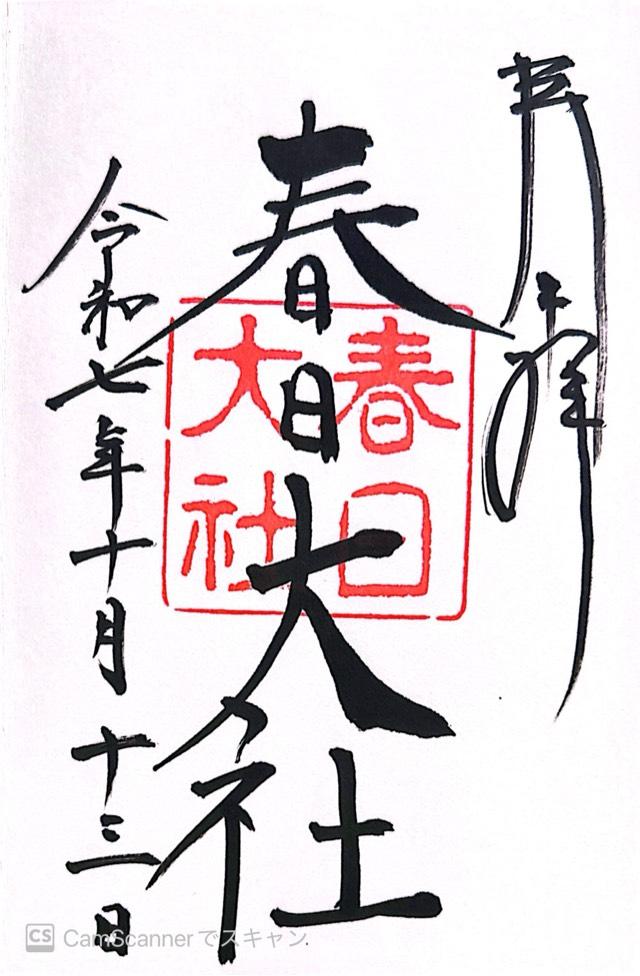 奉拝
春日大社
春日
大社
令和七年十月十三日
CS CamScannerでスキャン